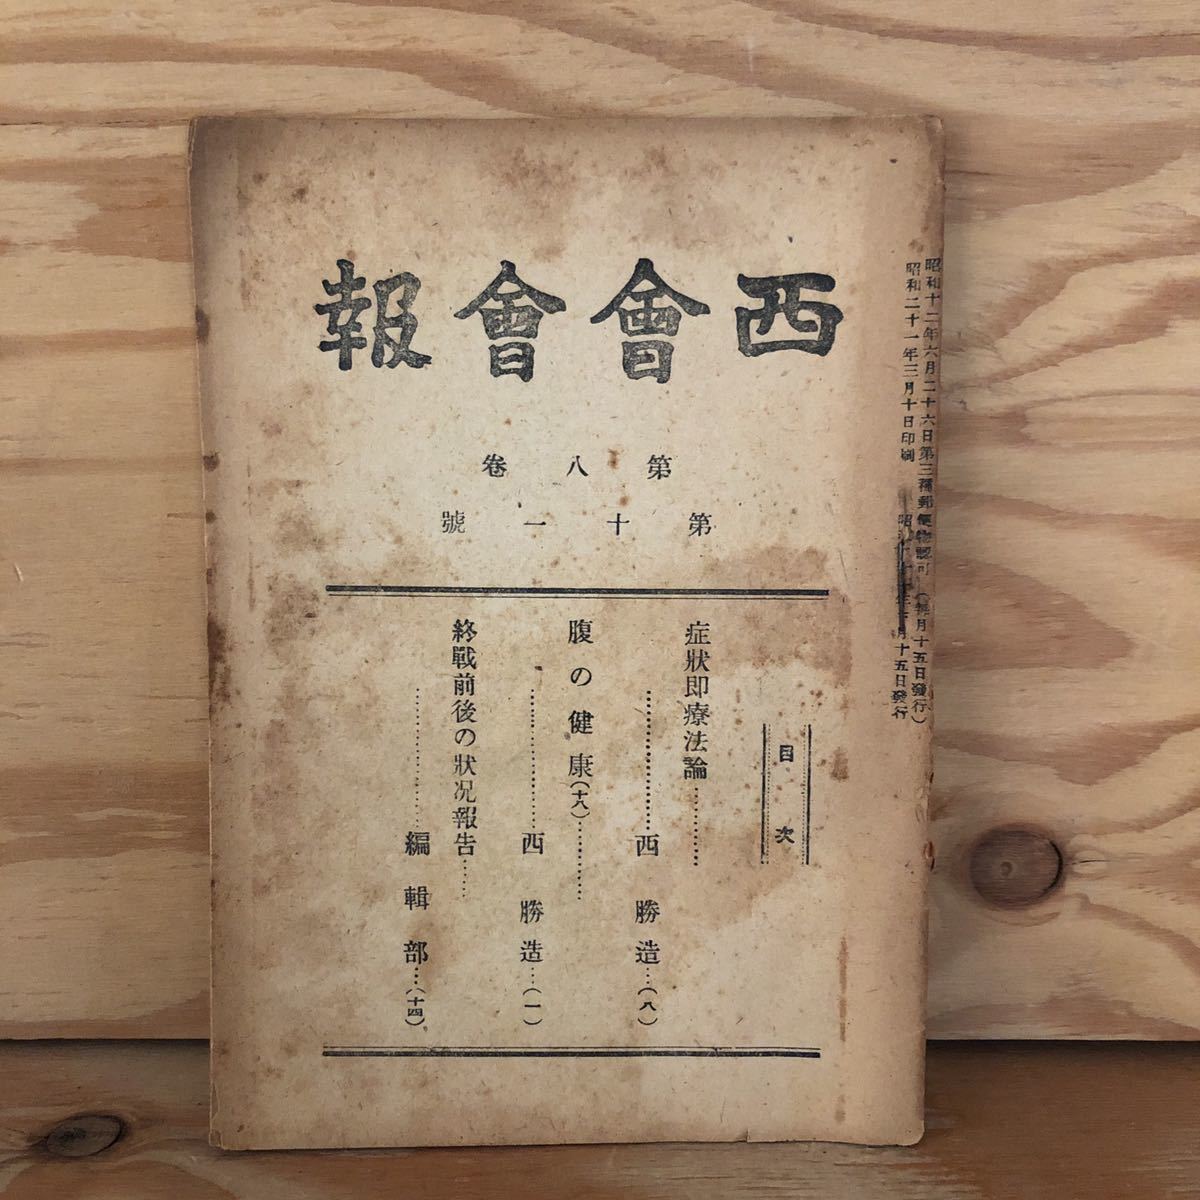 西會會報
第八卷
第十一號
昭和十二年六月二十六日第三種郵便物認可(每月十五日發行)
昭和二十一年三月十日印刷
月十五日發行
目次
症狀即療法論…………
………………西勝造…(八)
腹の健康(十八)…………
………………西勝造…(一)
終戰前後の狀况報告……
………………編輯部…(十四)